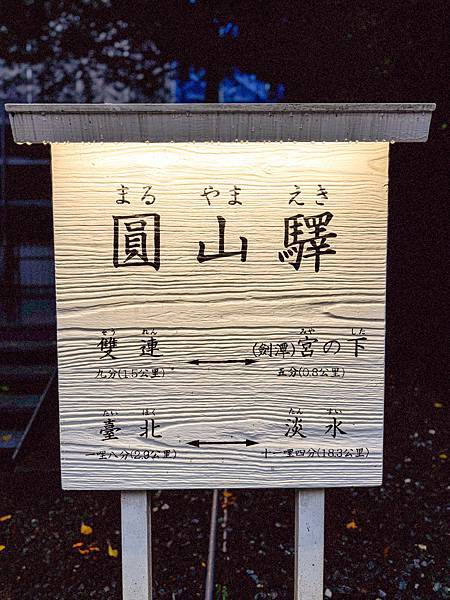 まる やま えき
圓山驛
そう れん みや した
雙連 (劍潭)宮の下
九分(1.5公里) 五分(0.8公里)
たい ほく たん すい
臺北 淡水
一哩八分(2.9公里) 十一哩四分(18.3公里)